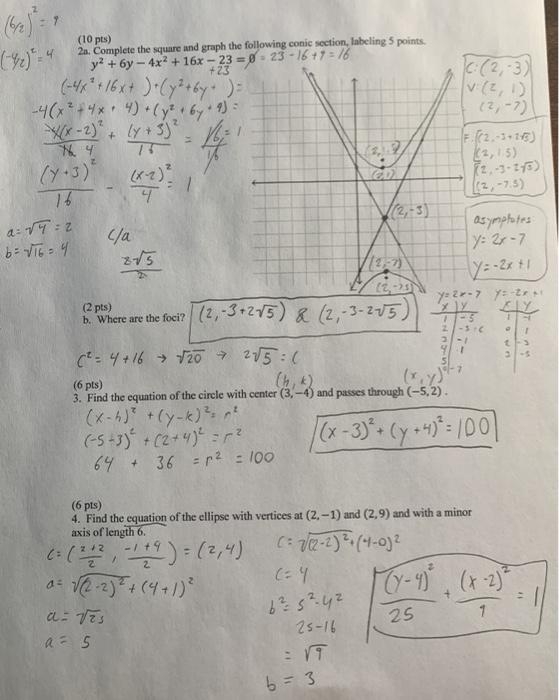 (6/2)² = 9
(-4/2)² = 4
(10 pts)
2a. Complete the square and graph the following conic section, labeling 5 points.
y² + 6y − 4x² + 16x − 23 = 0 = 23 - 16 + 9 = 16
+23
(-4x² + 16x + ) + (y² + 6y + ) =
-4(x² - 4x + 4) + (y² + 6y + 9) =
-4(x-2)²/16 4 + (y+3)²/16 = 16/16 = 1
(y+3)²/16 - (x-2)²/4 = 1
a = √4 = 2
b = √16 = 4
c/a
2√5/2
C: (2, -3)
V: (2, 1)
(2, -7)
F: (2, -3+2√5)
(2, 1.5)
(2, -3-2√5)
(2, -7.5)
asymptotes
y = 2x - 7
y = -2x + 1
(2,1)
(2,-3)
(2,-7)
(2,-7.5)
y = 2x - 7
x y
1 -5
2 -3
3 -1
4 1
y = -2x + 1
x y
1 -1
0 1
2 -3
3 -5
(2 pts)
b. Where are the foci? (2, -3+2√5) & (2, -3-2√5)
c² = 4 + 16 → √20 → 2√5 = c
(6 pts)
(h, k) (x, y)
3. Find the equation of the circle with center (3, −4) and passes through (−5, 2).
(x-h)² + (y-k)² = r²
(-5-3)² + (2+4)² = r²
64 + 36 = r² = 100
(x-3)² + (y+4)² = 100
(6 pts)
4. Find the equation of the ellipse with vertices at (2, −1) and (2, 9) and with a minor
axis of length 6.
C = (2+2/2, -1+9/2) = (2, 4)
a = √(2-2)² + (4+1)²
a = √25
a = 5
c = √(2-2)² + (4-0)²
c = 4
b² = 5² - 4²
25 - 16
= √9
b = 3
(y-4)²/25 + (x-2)²/9 = 1